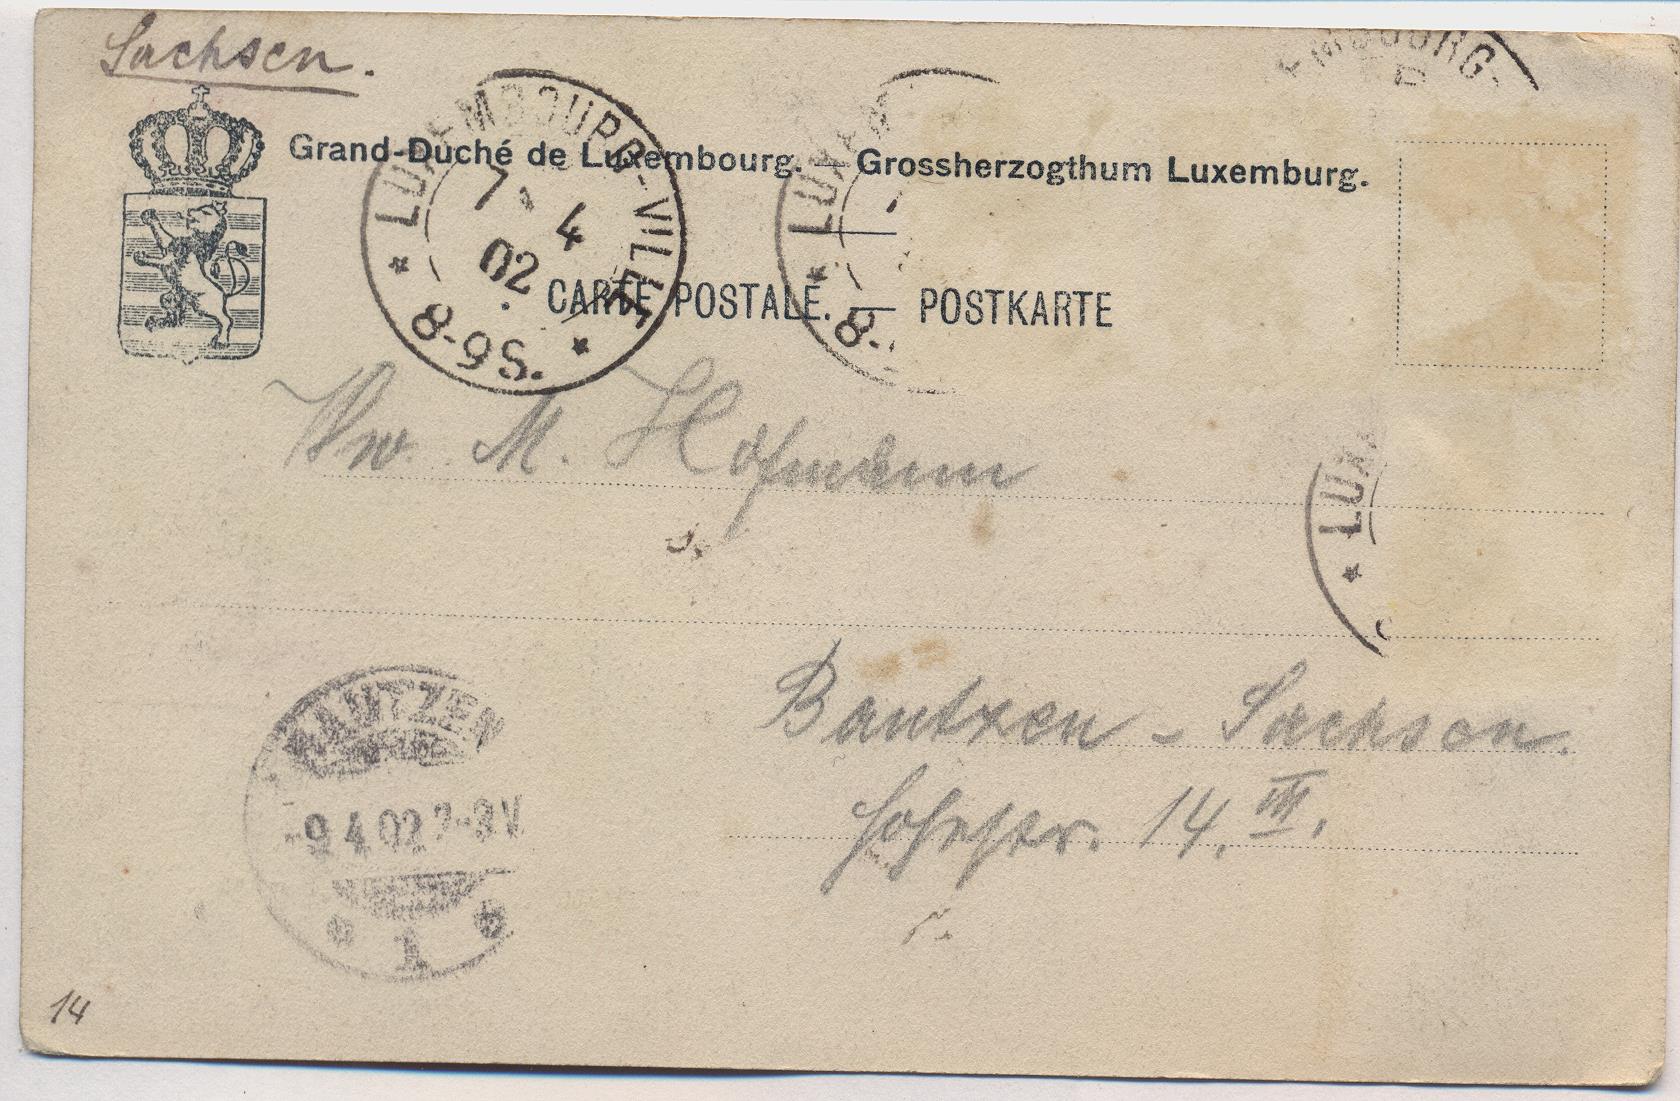 Sachsen.
Grand-Duché de Luxembourg. — Grossherzogthum Luxemburg.
LUXEMBOURG-VILLE
7 4
02
8-9S.
LUX
8-
EMBOURG-
CARTE POSTALE. — POSTKARTE
M. Hofmann
LUX
Bautzen - Sachsen.
Hohestr. 14. III.
BAUTZEN
-9 4 02 2-3V
1
14